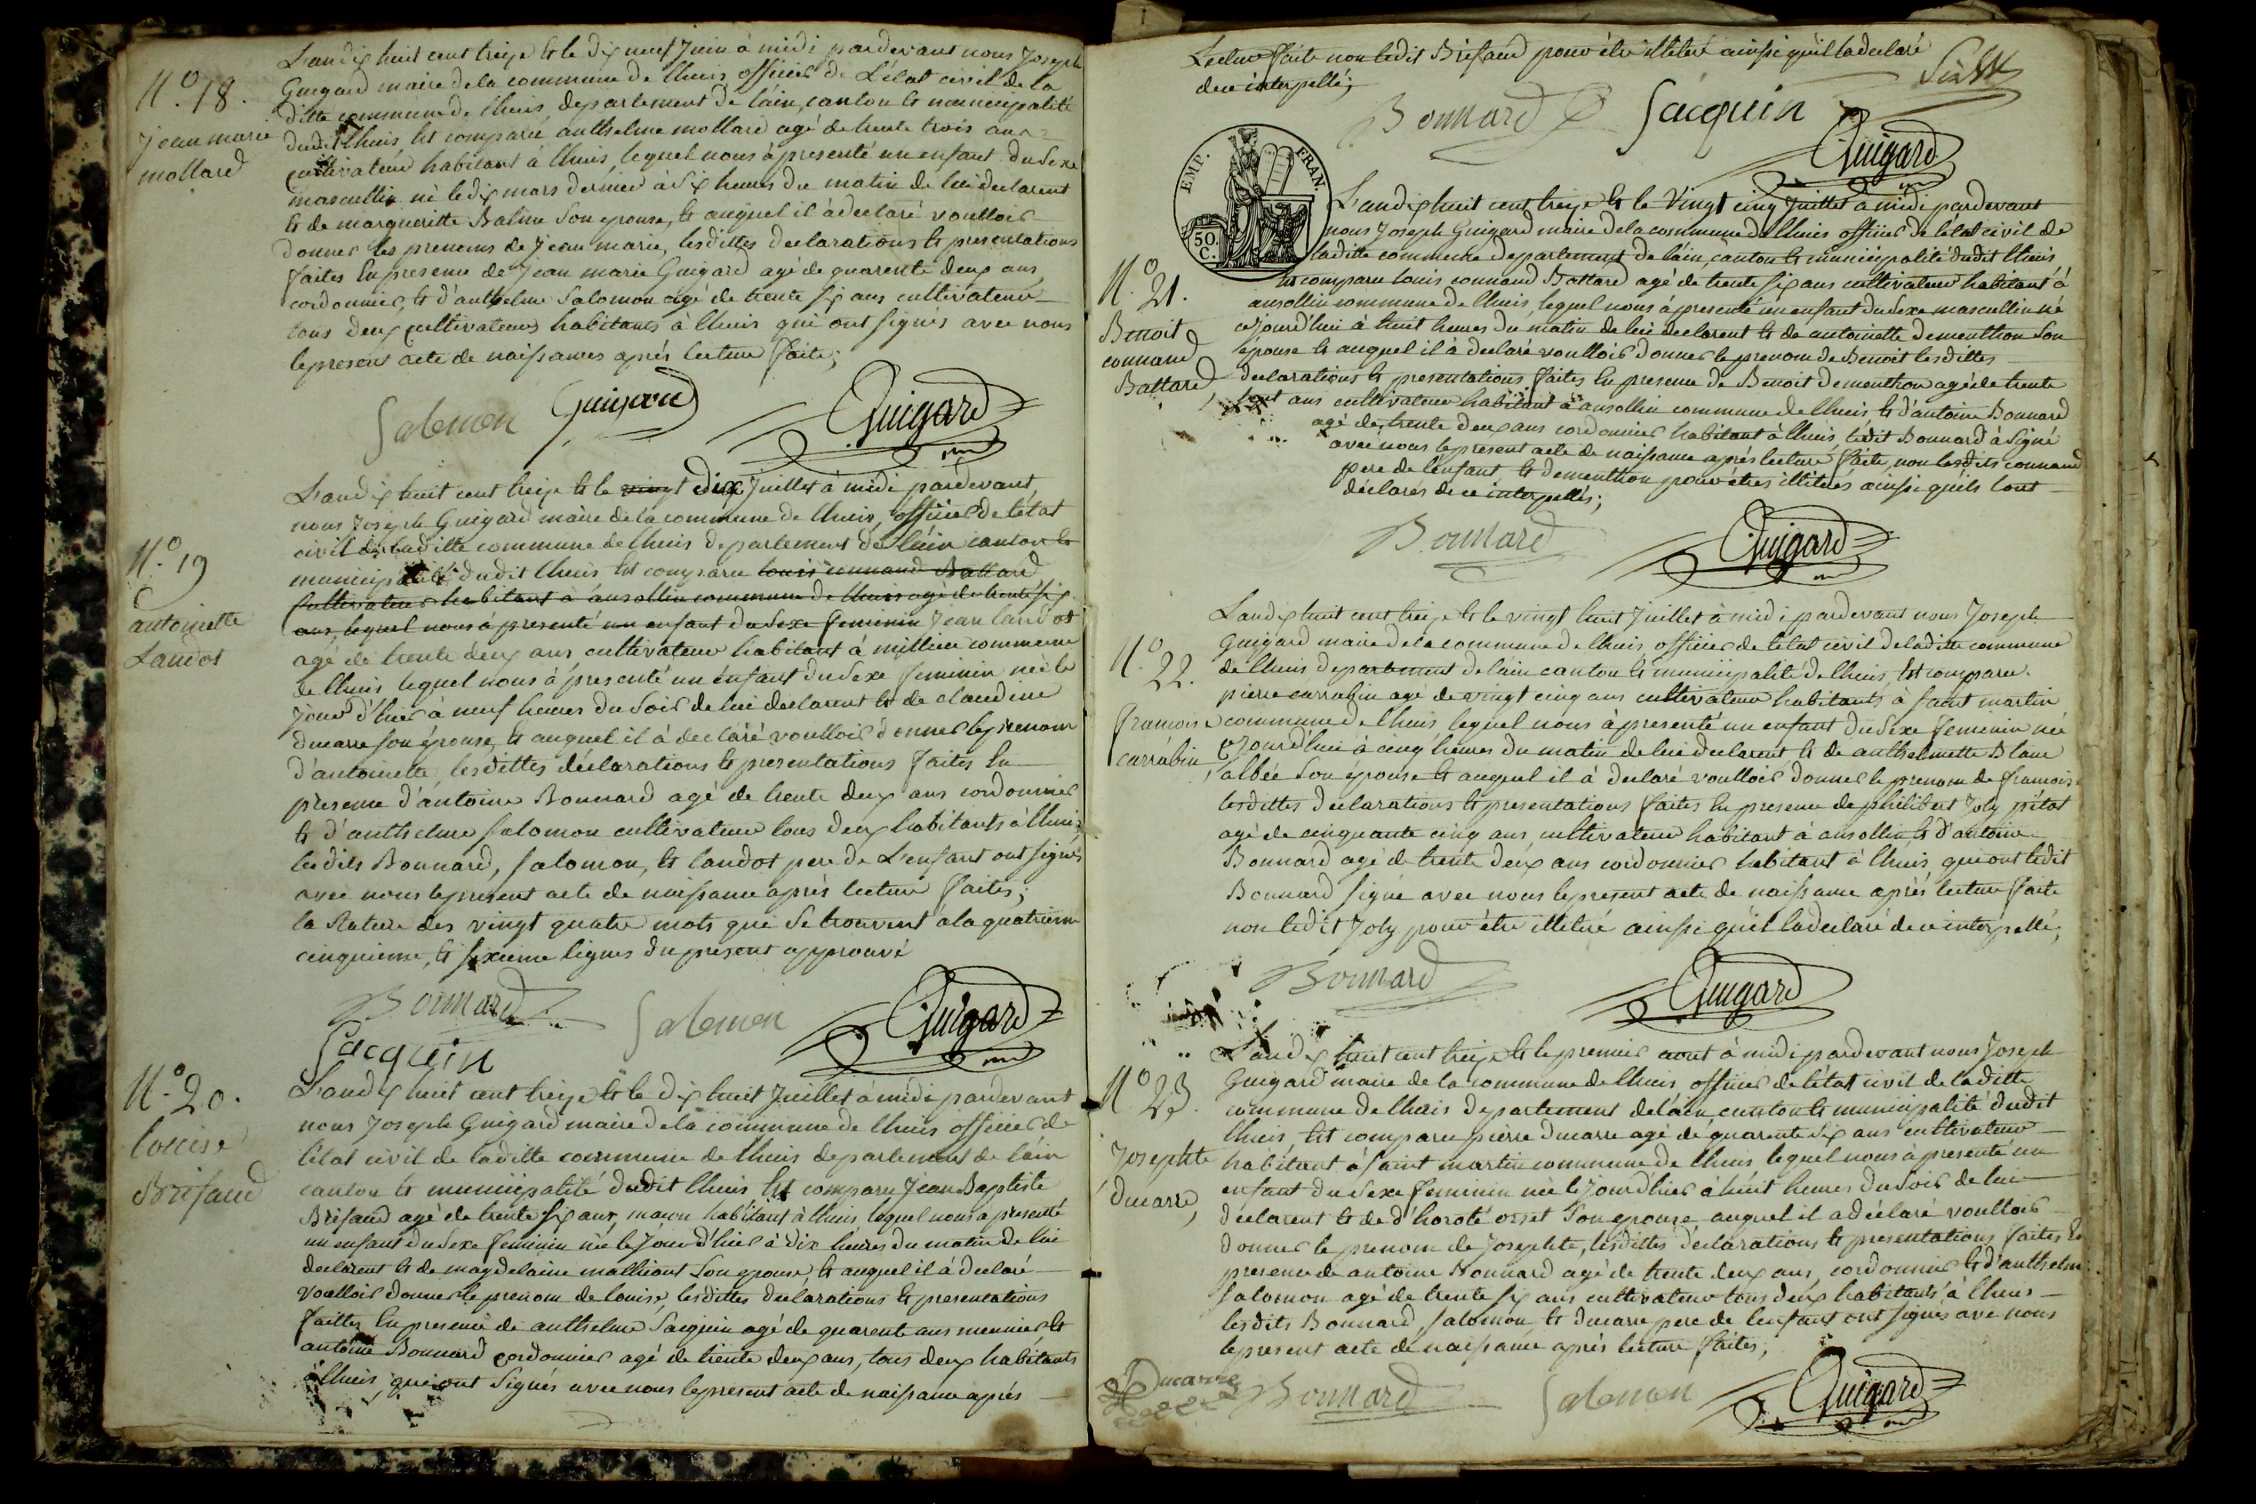 L'an dix huit cent treize & le dix neuf Juin à midi pardevant nous Joseph
Guigard maire de la commune de lhuis officier de L'état civil de la
ditte commune de lhuis, departement de l'ain, canton & municipalité
dudit lhuis, Est comparu anthelme mollard agé de trente trois ans
cultivateur habitant à lhuis, lequel nous à presenté un enfant du Sexe
masculin né le dix mars dernier à six heures du matin de lui declarent
& de margueritte Balme Son epouse, & auquel il à declaré voulloir
donner les prenoms de Jean marie, lesdittes declarations & presentations
faites En presence de Jean marie Guigard agé de quarente deux ans
cordonnier, & d'anthelme Salomon agé de trente six ans cultivateur
tous deux cultivateurs habitants à lhuis qui ont signés avec nous
le present acte de naissances après lecture faite;
N.o 18.
Jean marie
mollard
Salomon Guigard Guigard
L'an dix huit cent treize & le vingt dix Juillet à midi pardevant
nous Joseph Guigard maire de la commune de lhuis, officier de l'état
civil de laditte commune de lhuis departement de l'ain canton &
municipalité dudit lhuis Est comparu louis connand Battard
Cultivateur habitant à ansollin commune de lhuis agé de trente six
ans, lequel nous à presenté un enfant du Sexe feminin Jean landot
agé de trente deux ans cultivateur habitant à millieu commune
de lhuis lequel nous à presenté un enfant du Sexe feminin neé le
Jour d'hier à neuf heures du Soir de lui declarent & de claudine
ducarre son épouse, & auquel il à declaré voulloir donner le prenom
d'antoinette, lesdittes déclarations & presentations faites En
presence d'antoine Bonnard agé de trente deux ans cordonnier
& d'anthelme Salomon cultivateur tous deux habitants à lhuis
lesdits Bonnard, Salomon, & landot pere de L'enfant ont signés
avec nous le present acte de naissance après lecture faites;
la Rature des vingt quatre mots qui se trouvent a la quatrieme
cinquieme, & sixieme lignes du present approuvé
N.o 19
antoinette
Landot
Bonnard Salomon Guigard
Jacquin
L'an dix huit cent treize & le dix huit Juillet à midi pardevant
nous Joseph Guigard maire de la commune de lhuis officier de
l'état civil de laditte commune de lhuis departement de l'ain
canton & municipalité dudit lhuis Est comparu Jean Baptiste
Brisaud agé de trente six ans, maçon habitant à lhuis lequel nous a presenté
un enfant du Sexe feminin née le Jour d'hier à dix heures du matin de lui
declarent & de magdelaine Son epouse & auquel il à declaré
voulloir donner le prenom de louise, lesdittes declarations & presentations
faittes En presence de anthelme Jacquin agé de quarente ans meunier &
antoine Bonnard cordonnier agé de trente deux ans, tous deux habitants
à lhuis, qui ont Signés avec nous le present acte de naissance après
N.o 20.
louise
Brisaud
Lecture faite non ledit Brisaud pour être illitéré ainsi qu'il la declaré
de ce interpellé;
Bonnard Jacquin
Guigard
EMP. FRAN.
50. C.
L'an dix huit cent treize & le Vingt cinq Juillet à midi pardevant
nous Joseph Guigard maire de la commune de lhuis officier de l'état civil de
laditte commune departement de l'ain, canton & municipalité dudit lhuis
Est comparu louis connand Battard agé de trente six ans cultivateur habitant à
ansollin commune de lhuis, lequel nous à presenté un enfant du Sexe masculin né
ajourd'hui à huit heures du matin de lui declarent & de antoinette dementhon Son
épouse & auquel il à declaré voulloir donner le prenom de Benoit lesdittes
declarations & presentations faites En presence de Benoit dementhon agé de trente
sept ans cultivateur habitant à ansollin commune de lhuis & d'antoine Bonnard
agé de trente deux ans cordonnier habitant à lhuis, ledit Bonnard à Signé
avec nous le present acte de naissance après lecture faite, non lesdits connand
pere de l'enfant & dementhon pour êtres illitérés ainsi qu'ils lont
déclarés de ce interpellés;
N.o 21.
Benoit
connand
Battard
Bonnard Guigard
L'an dix huit cent treize & le vingt huit Juillet à midi pardevant nous Joseph
Guigard maire de la commune de lhuis, officier de l'état civil de laditte commune
de lhuis departement de l'ain canton & municipalité de lhuis, Est comparu
pierre carrabin agé de vingt cinq ans cultivateur habitants à saint martin
commune de lhuis, lequel nous à presenté un enfant du Sexe feminin née
ajourd'hui à cinq heures du matin de lui declarent, & de anthelmette Blanc
albée Son épouse & auquel il à declaré voulloir donner le prenom de francoise
lesdittes declarations & presentations faites En presence de philibert Joly pétot
agé de cinquante cinq ans, cultivateur habitant à ansollin, & d'antoine
Bonnard agé de trente deux ans cordonnier habitant à lhuis, qui ont ledit
Bonnard signé avec nous le present acte de naissance après lecture faite
non ledit Joly pour être illitéré ainsi qu'il la declaré de ce interpellé;
N.o 22.
francoise
carrabin
Bonnard Guigard
L'an dix huit cent treize & le premier aout à midi pardevant nous Joseph
Guigard maire de la commune de lhuis, officier de l'état civil de laditte
commune de lhuis departement de l'ain, canton & municipalité dudit
lhuis, Est comparu pierre ducarre agé de quarente six ans cultivateur
habitant à saint martin commune de lhuis lequel nous a presenté un
enfant du Sexe feminin née le Jourdhier à huit heures du Soir de lui
declarent & de d'horoté orset Son epouse auquel il a declaré voulloir
donner le prenom de Josephte, lesdittes declarations & presentations faites En
presence de antoine Bonnard agé de trente deux ans, cordonnier & d'anthelme
Salomon agé de trente six ans cultivateur tous deux habitants à lhuis
lesdits Bonnard, Salomon & ducarre pere de lenfant ont signés avec nous
le present acte de naissance après lecture faites;
N.o 23.
Josephte
ducarre
Ducarre Bonnard Salomon Guigard